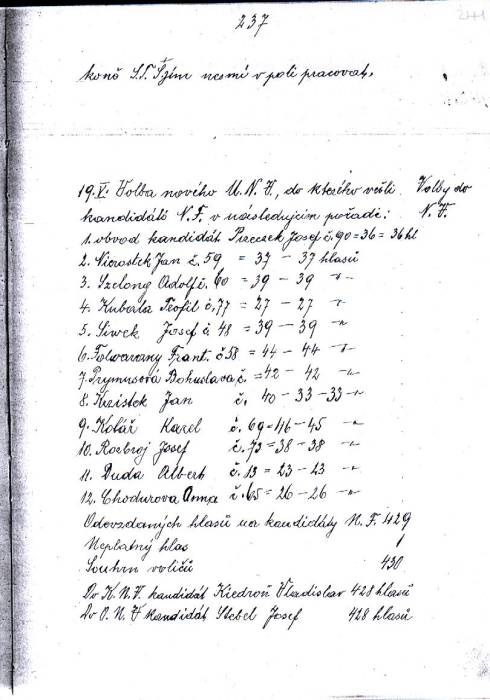 237
241
koně S.S. Šzím nesmí v poli pracovat.
19.V. Volba nového M.N.V., do kterého vešli Volby do
kandidáti N.F. v následujícím pořadí: N.V.
1. obvod kandidát Josef č. 90 = 36 = 36 hl
2. Niorostek Jan č. 59 = 37 - 37 hlasů
3. Szelong Adolf č. 60 = 39 - 39 -"-
4. Kubala Teofil č. 77 = 27 - 27 -"-
5. Siwek Josef č 48 = 39 - 39 -"-
6. Folwarczny Frant. č 58 = 44 - 44 -"-
7. Prymusová Bohuslava č. = 42 - 42 -"-
8. Krzistek Jan č. 40 - 33 - 33 -"-
9. Kolář Karel č. 69 = 46 - 45 -"-
10. Rozbroj Josef č. 73 = 38 - 38 -"-
11. Duda Albert č. 13 = 23 - 23 -"-
12. Chodurova Anna č. 65 = 26 - 26 -"-
Odevzdaných hlasů na kandidáty N.F. 429
Neplatný hlas 1
Souhrn voličů 430
Do K.N.V. kandidát Kiedroň Vladislav 428 hlasů
Do O.N.V kandidát Stebel Josef 428 hlasů